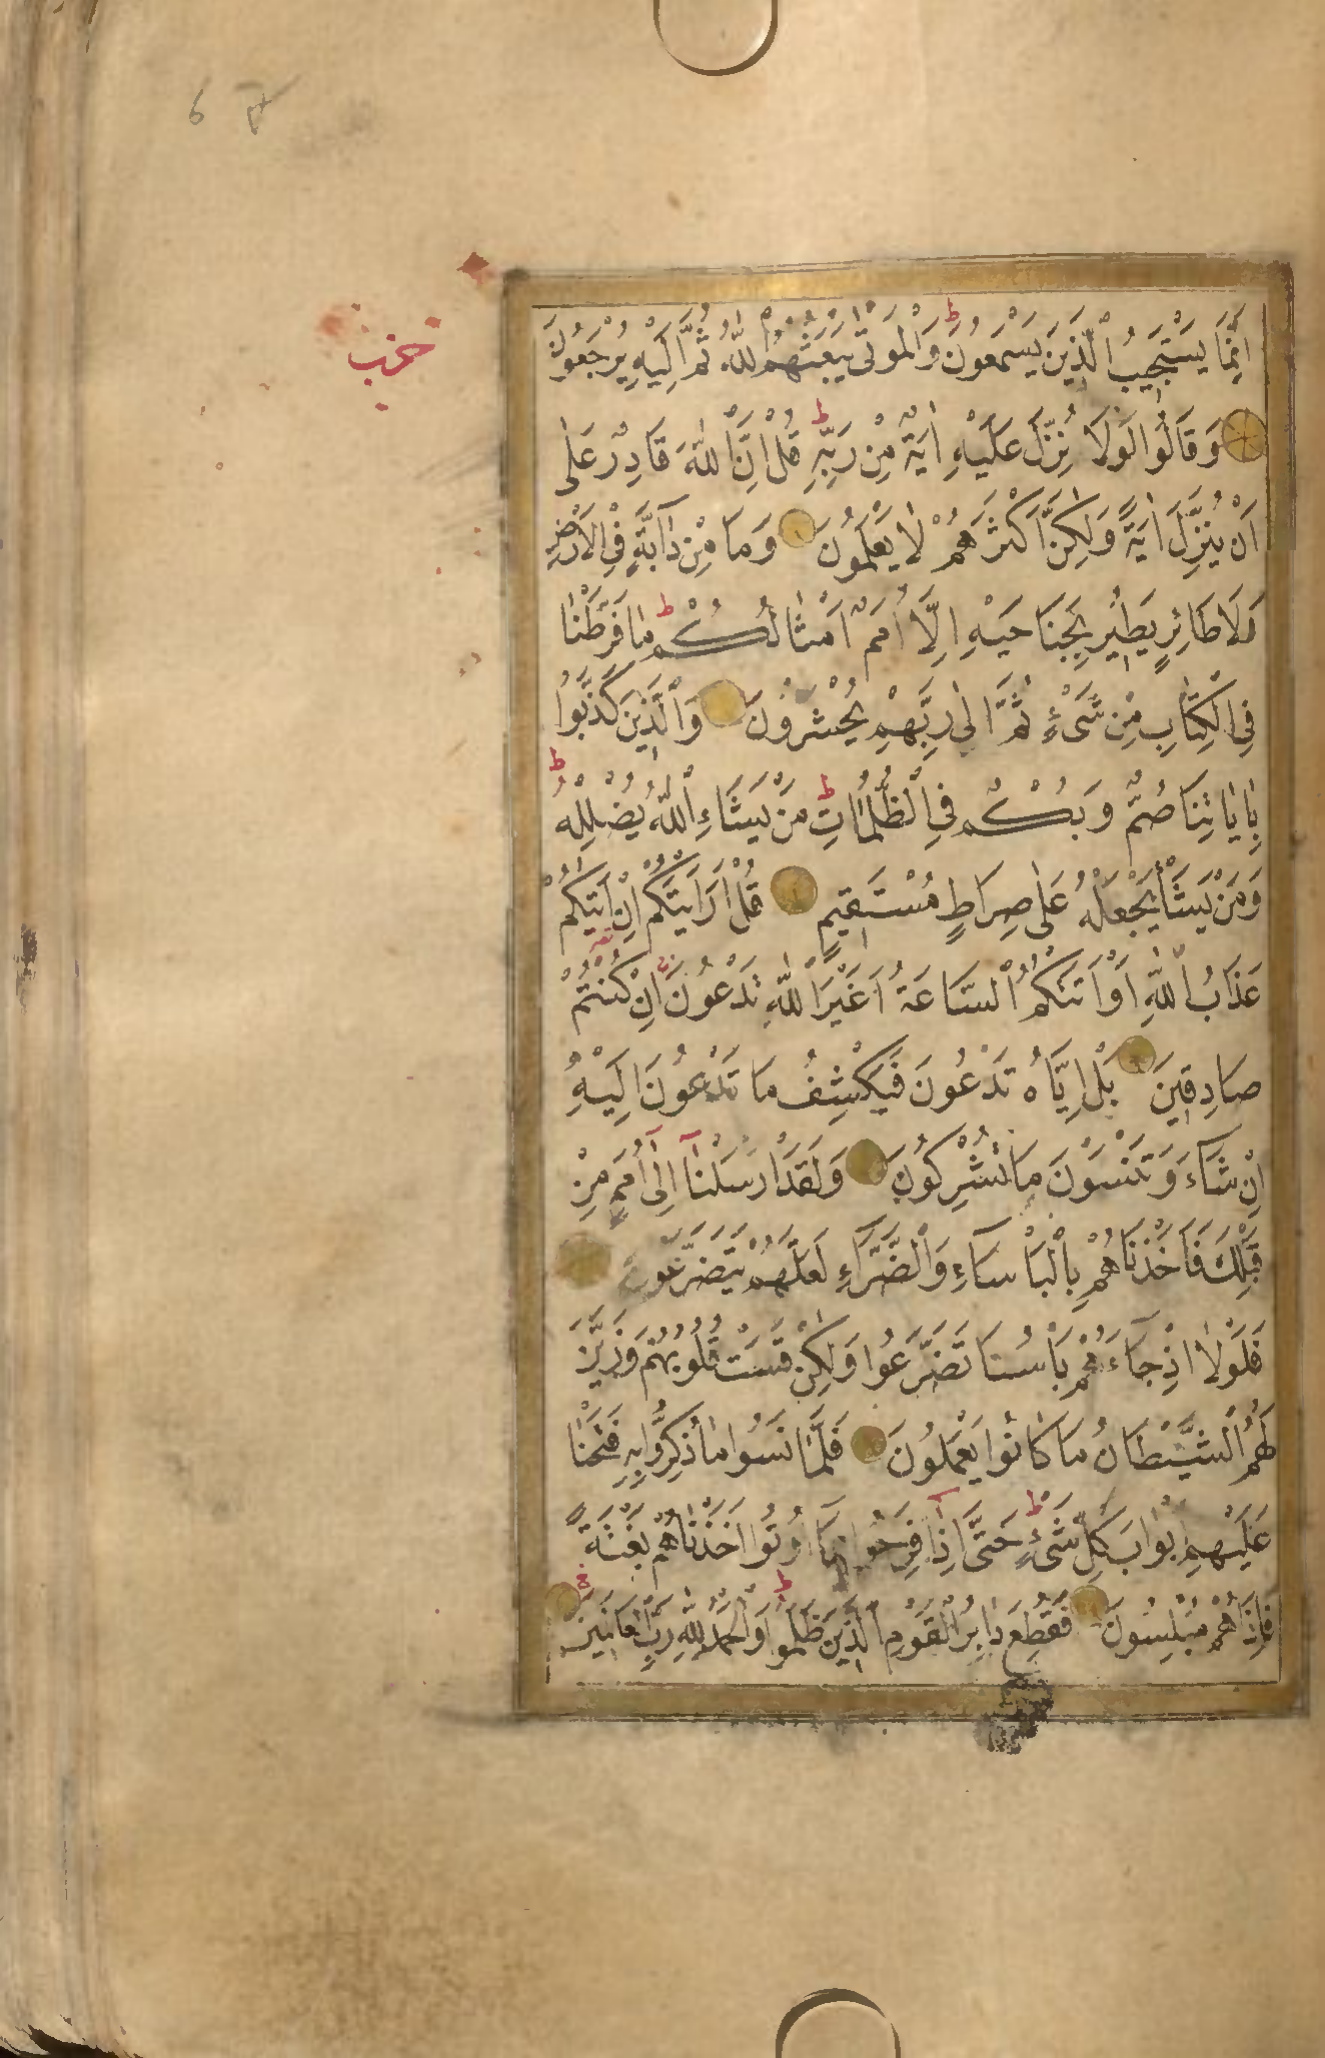 حزب
اِنَّمَا يَسْتَجٖيبُ الَّذٖينَ يَسْمَعُونَ وَالْمَوْتٰى يَبْعَثُهُمُ اللّٰهُ ثُمَّ اِلَيْهِ يُرْجَعُونَ
وَقَالُوا لَوْلَا نُزِّلَ عَلَيْهِ اٰيَةٌ مِنْ رَبِّهٖ قُلْ اِنَّ اللّٰهَ قَادِرٌ عَلٰى
اَنْ يُنَزِّلَ اٰيَةً وَلٰكِنَّ اَكْثَرَهُمْ لَا يَعْلَمُونَ وَمَا مِنْ دَابَّةٍ فِى الْاَرْضِ
وَلَا طَائِرٍ يَطٖيرُ بِجَنَاحَيْهِ اِلَّا اُمَمٌ اَمْثَالُكُمْ مَا فَرَّطْنَا
فِى الْكِتَابِ مِنْ شَىْءٍ ثُمَّ اِلٰى رَبِّهِمْ يُحْشَرُونَ وَالَّذٖينَ كَذَّبُوا
بِاٰيَاتِنَا صُمٌّ وَبُكْمٌ فِى الظُّلُمَاتِ مَنْ يَشَاءِ اللّٰهُ يُضْلِلْهُ
وَمَنْ يَشَأْ يَجْعَلْهُ عَلٰى صِرَاطٍ مُسْتَقٖيمٍ قُلْ اَرَاَيْتَكُمْ اِنْ اَتٰيكُمْ
عَذَابُ اللّٰهِ اَوْ اَتَتْكُمُ السَّاعَةُ اَغَيْرَ اللّٰهِ تَدْعُونَ اِنْ كُنْتُمْ
صَادِقٖينَ بَلْ اِيَّاهُ تَدْعُونَ فَيَكْشِفُ مَا تَدْعُونَ اِلَيْهِ
اِنْ شَاءَ وَتَنْسَوْنَ مَا تُشْرِكُونَ وَلَقَدْ اَرْسَلْنَا اِلٰى اُمَمٍ مِنْ
قَبْلِكَ فَاَخَذْنَاهُمْ بِالْبَاْسَاءِ وَالضَّرَّاءِ لَعَلَّهُمْ يَتَضَرَّعُونَ
فَلَوْلَا اِذْ جَاءَهُمْ بَاْسُنَا تَضَرَّعُوا وَلٰكِنْ قَسَتْ قُلُوبُهُمْ وَزَيَّنَ
لَهُمُ الشَّيْطَانُ مَا كَانُوا يَعْمَلُونَ فَلَمَّا نَسُوا مَا ذُكِّرُوا بِهٖ فَتَحْنَا
عَلَيْهِمْ اَبْوَابَ كُلِّ شَىْءٍ حَتّٰى اِذَا فَرِحُوا بِمَا اُوتُوا اَخَذْنَاهُمْ بَغْتَةً
فَاِذَا هُمْ مُبْلِسُونَ فَقُطِعَ دَابِرُ الْقَوْمِ الَّذٖينَ ظَلَمُوا وَالْحَمْدُ لِلّٰهِ رَبِّ الْعَالَمٖينَ